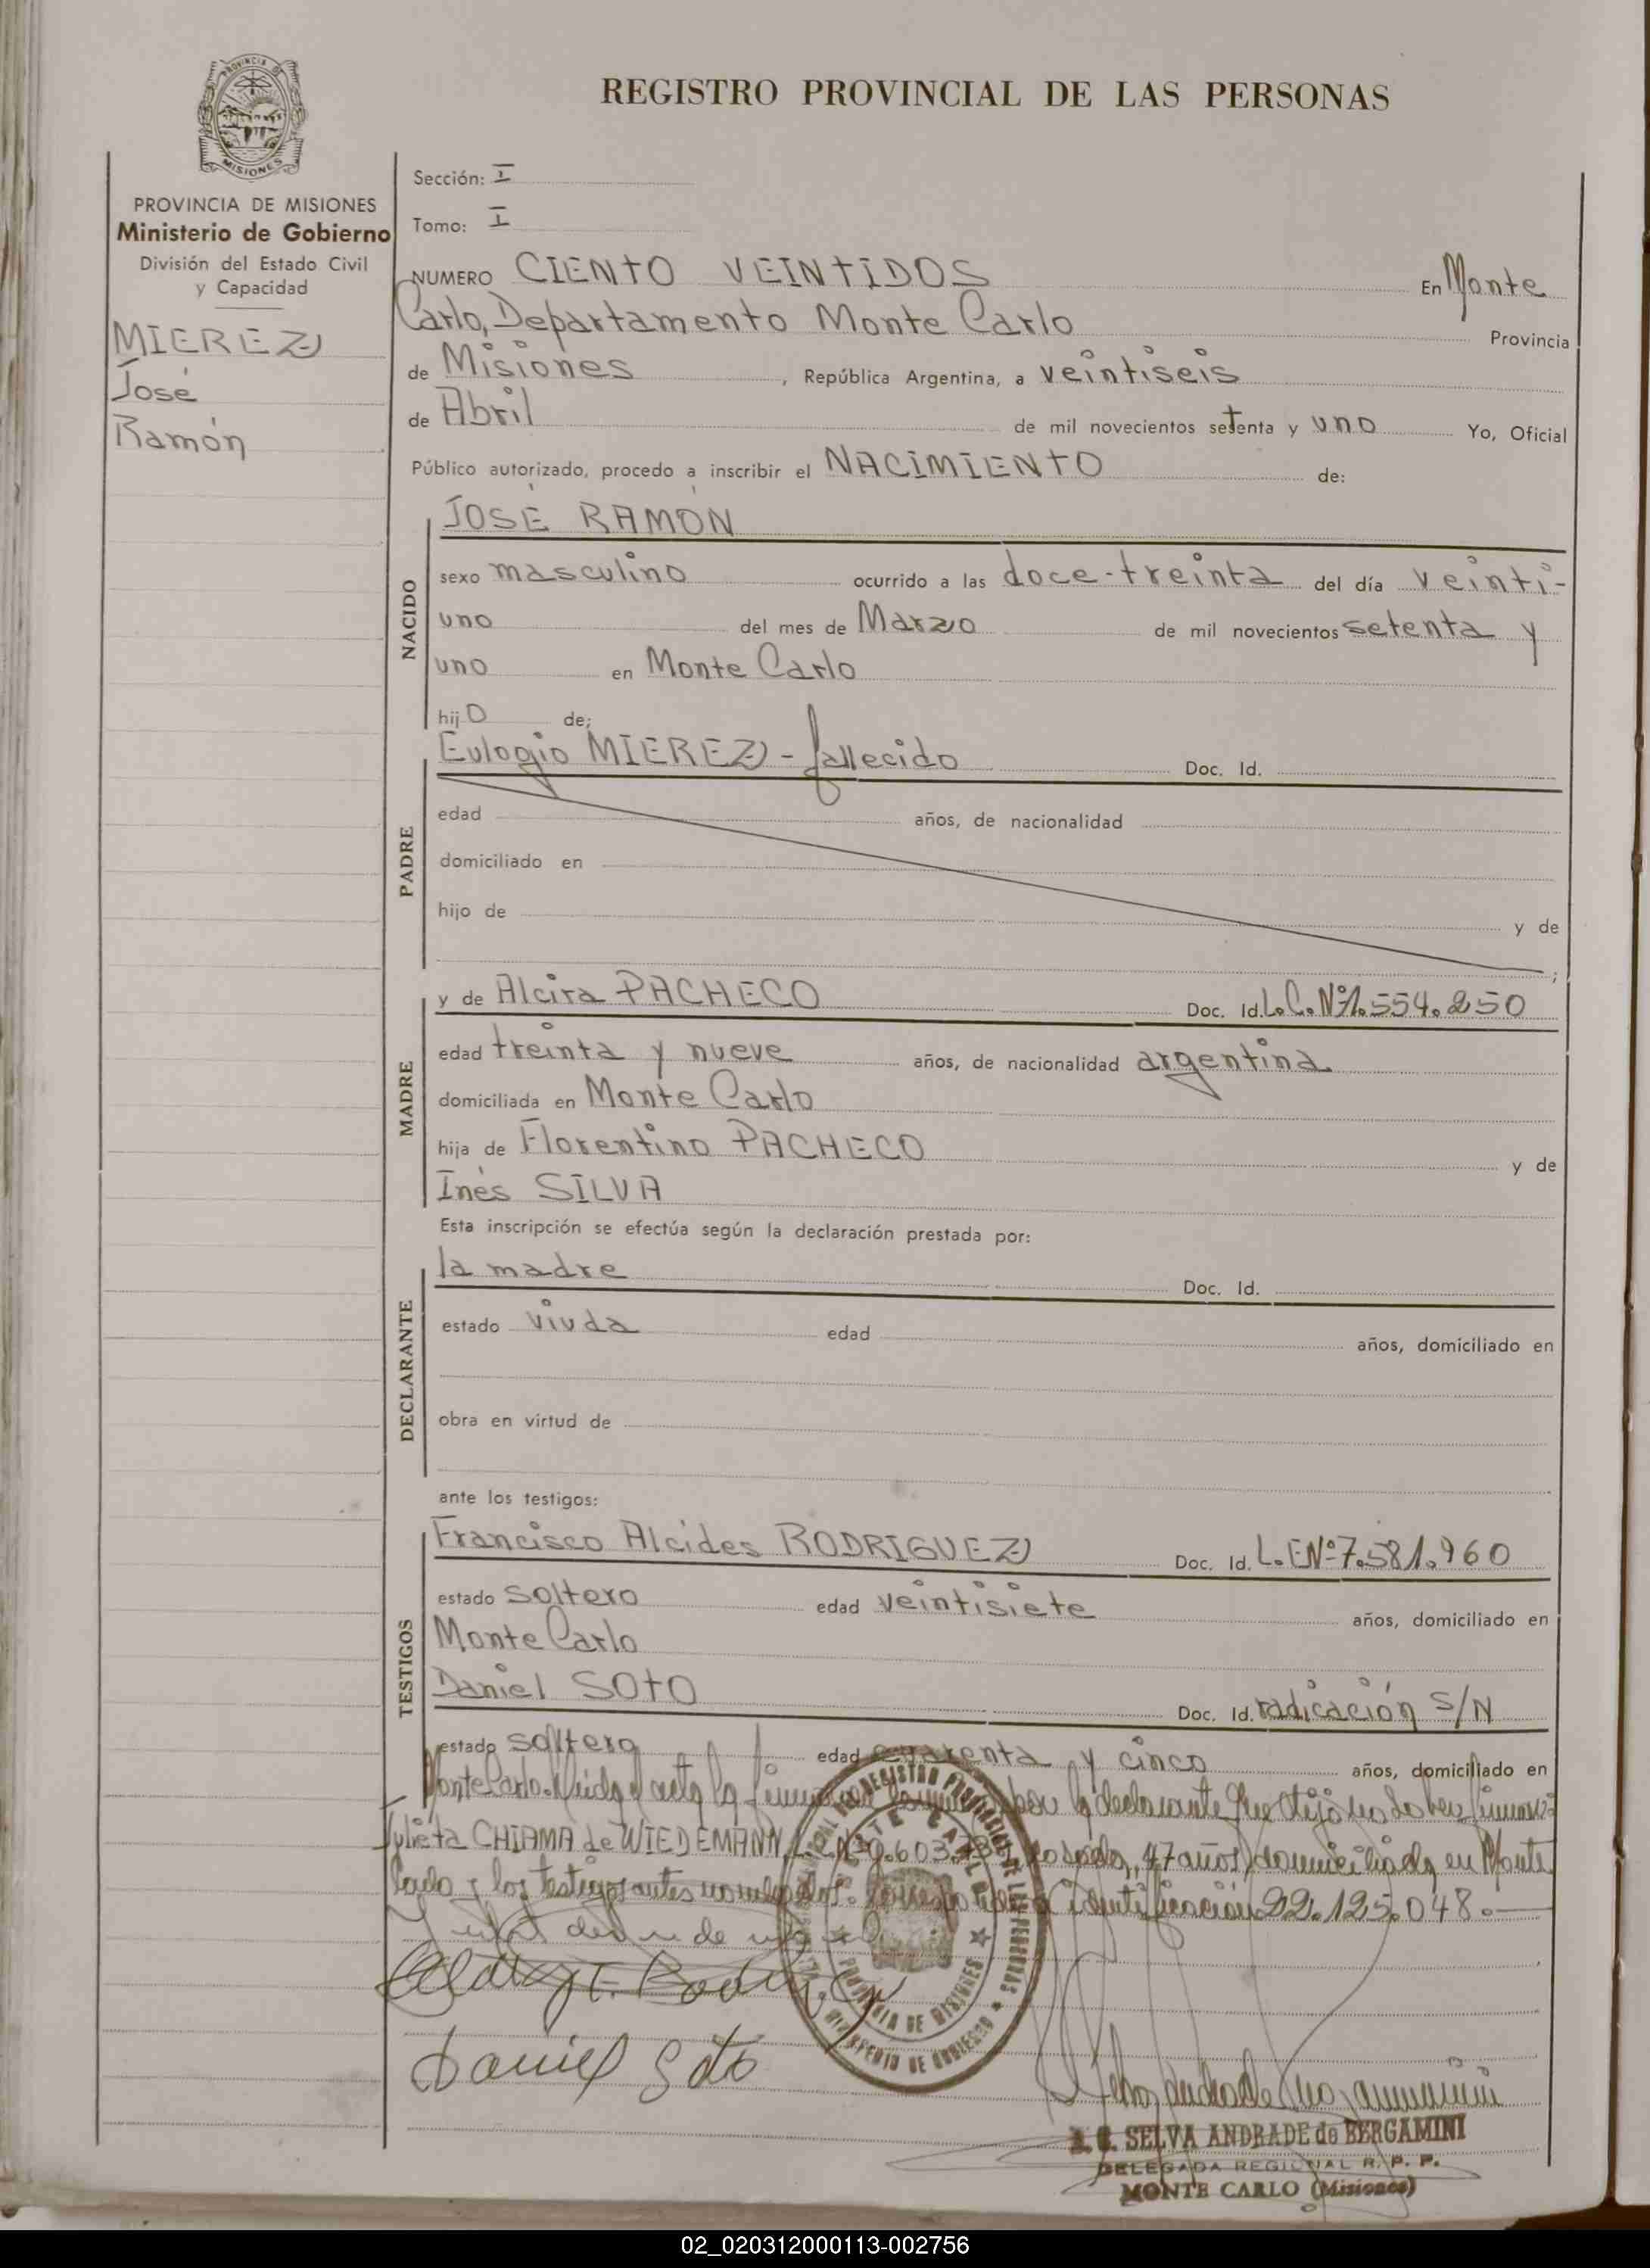 PROVINCIA
MISIONES
REGISTRO PROVINCIAL DE LAS PERSONAS
PROVINCIA DE MISIONES
Ministerio de Gobierno
División del Estado Civil
y Capacidad
MIEREZ
José
Ramón
Sección: I
Tomo: I
NUMERO CIENTO VEINTIDOS En Monte
Carlo, Departamento Monte Carlo Provincia
de Misiones, República Argentina, a veintiseis
de Abril de mil novecientos setenta y uno Yo, Oficial
Público autorizado, procedo a inscribir el NACIMIENTO de:
NACIDO
JOSÉ RAMÓN
sexo masculino ocurrido a las doce-treinta del día veinti-
uno del mes de Marzo de mil novecientos setenta y
uno en Monte Carlo
hijo de;
PADRE
Eulogio MIEREZ - fallecido Doc. Id.
edad años, de nacionalidad
domiciliado en
hijo de y de
;
MADRE
y de Alcira PACHECO Doc. Id. L.C. Nº 1.554.250
edad treinta y nueve años, de nacionalidad argentina
domiciliada en Monte Carlo
hija de Florentino PACHECO y de
Inés SILVA
Esta inscripción se efectúa según la declaración prestada por:
DECLARANTE
la madre Doc. Id.
estado viuda edad años, domiciliado en
obra en virtud de
ante los testigos:
TESTIGOS
Francisco Alcides RODRIGUEZ Doc. Id. L.E Nº 7.581.960
estado soltero edad veintisiete años, domiciliado en
Monte Carlo
Daniel SOTO Doc. Id. radicación S/N
estado soltero edad cuarenta y cinco años, domiciliado en
Monte Carlo. Leída el acta la firman por la declarante que dijo no saber firmar
Julieta CHIAMA de WIEDEMANN, casada, 47 años, domiciliada en Monte
Carlo y los testigos antes nombrados. identificación 22.125.048.-
MONTE CARLO
PROVINCIA DE MISIONES
MINISTERIO DE GOBIERNO
Daniel Soto
SELVA ANDRADE de BERGAMINI
DELEGADA REGIONAL R. P. P.
MONTE CARLO (Misiones)
02_020312000113-002756